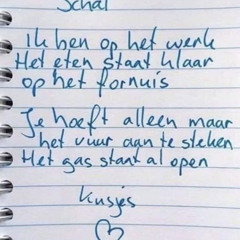 Schat
Ik ben op het werk
Het eten staat klaar
op het fornuis
Je hoeft alleen maar
het vuur aan te steken
Het gas staat al open
Kusjes